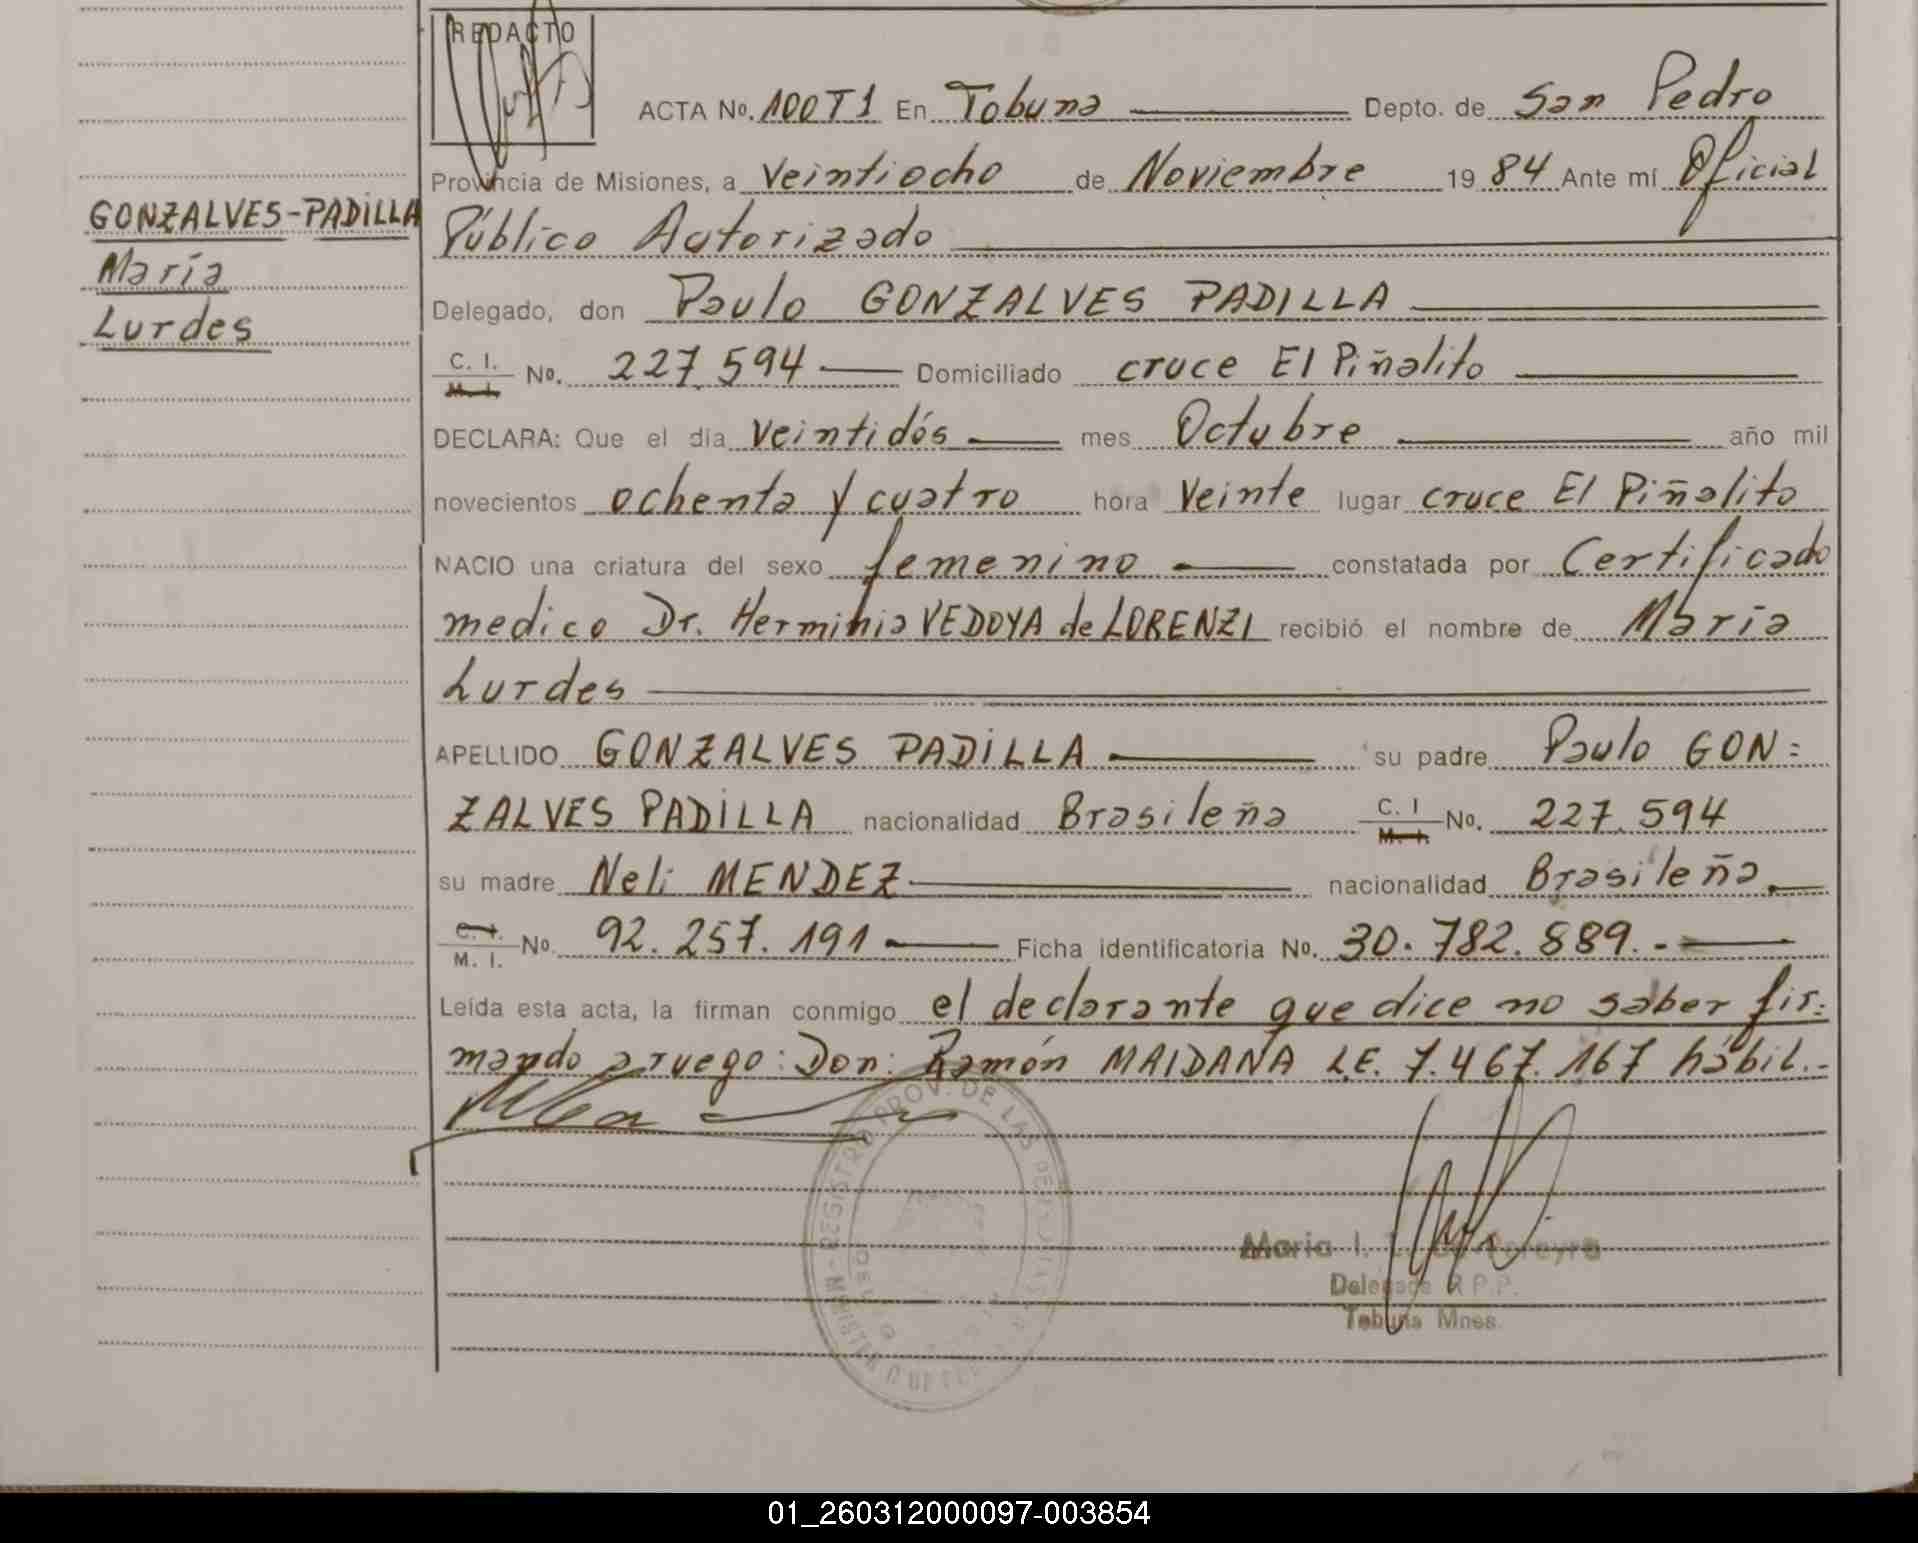 REDACTO
ACTA No. 100 T1 En Tobuna Depto. de San Pedro
Provincia de Misiones, a Veintiocho de Noviembre 1984 Ante mí Oficial
Público Autorizado
GONZALVES-PADILLA
María
Lurdes
Delegado, don Paulo GONZALVES PADILLA
C. I. M. I. No. 227.594 Domiciliado cruce El Piñalito
DECLARA: Que el día Veintidós mes Octubre año mil
novecientos ochenta y cuatro hora Veinte lugar cruce El Piñalito
NACIO una criatura del sexo femenino constatada por Certificado
medico Dr. Herminia VEDOYA de LORENZI recibió el nombre de María
Lurdes
APELLIDO GONZALVES PADILLA su padre Paulo GON=
ZALVES PADILLA nacionalidad Brasileña C. I M. I. No. 227.594
su madre Neli MENDEZ nacionalidad Brasileña.
C. I. M. I. No. 92.257.191 Ficha identificatoria No. 30.782.889.-
Leída esta acta, la firman conmigo el declarante que dice no saber fir=
mando a ruego: Don: Ramón MAIDANA L.E. 7.467.167 hábil.-
REGISTRO PROV. DE LAS PERSONAS
Maria I. de Pereyra
Delegada R.P.P.
Tobuna Mnes.
01_260312000097-003854